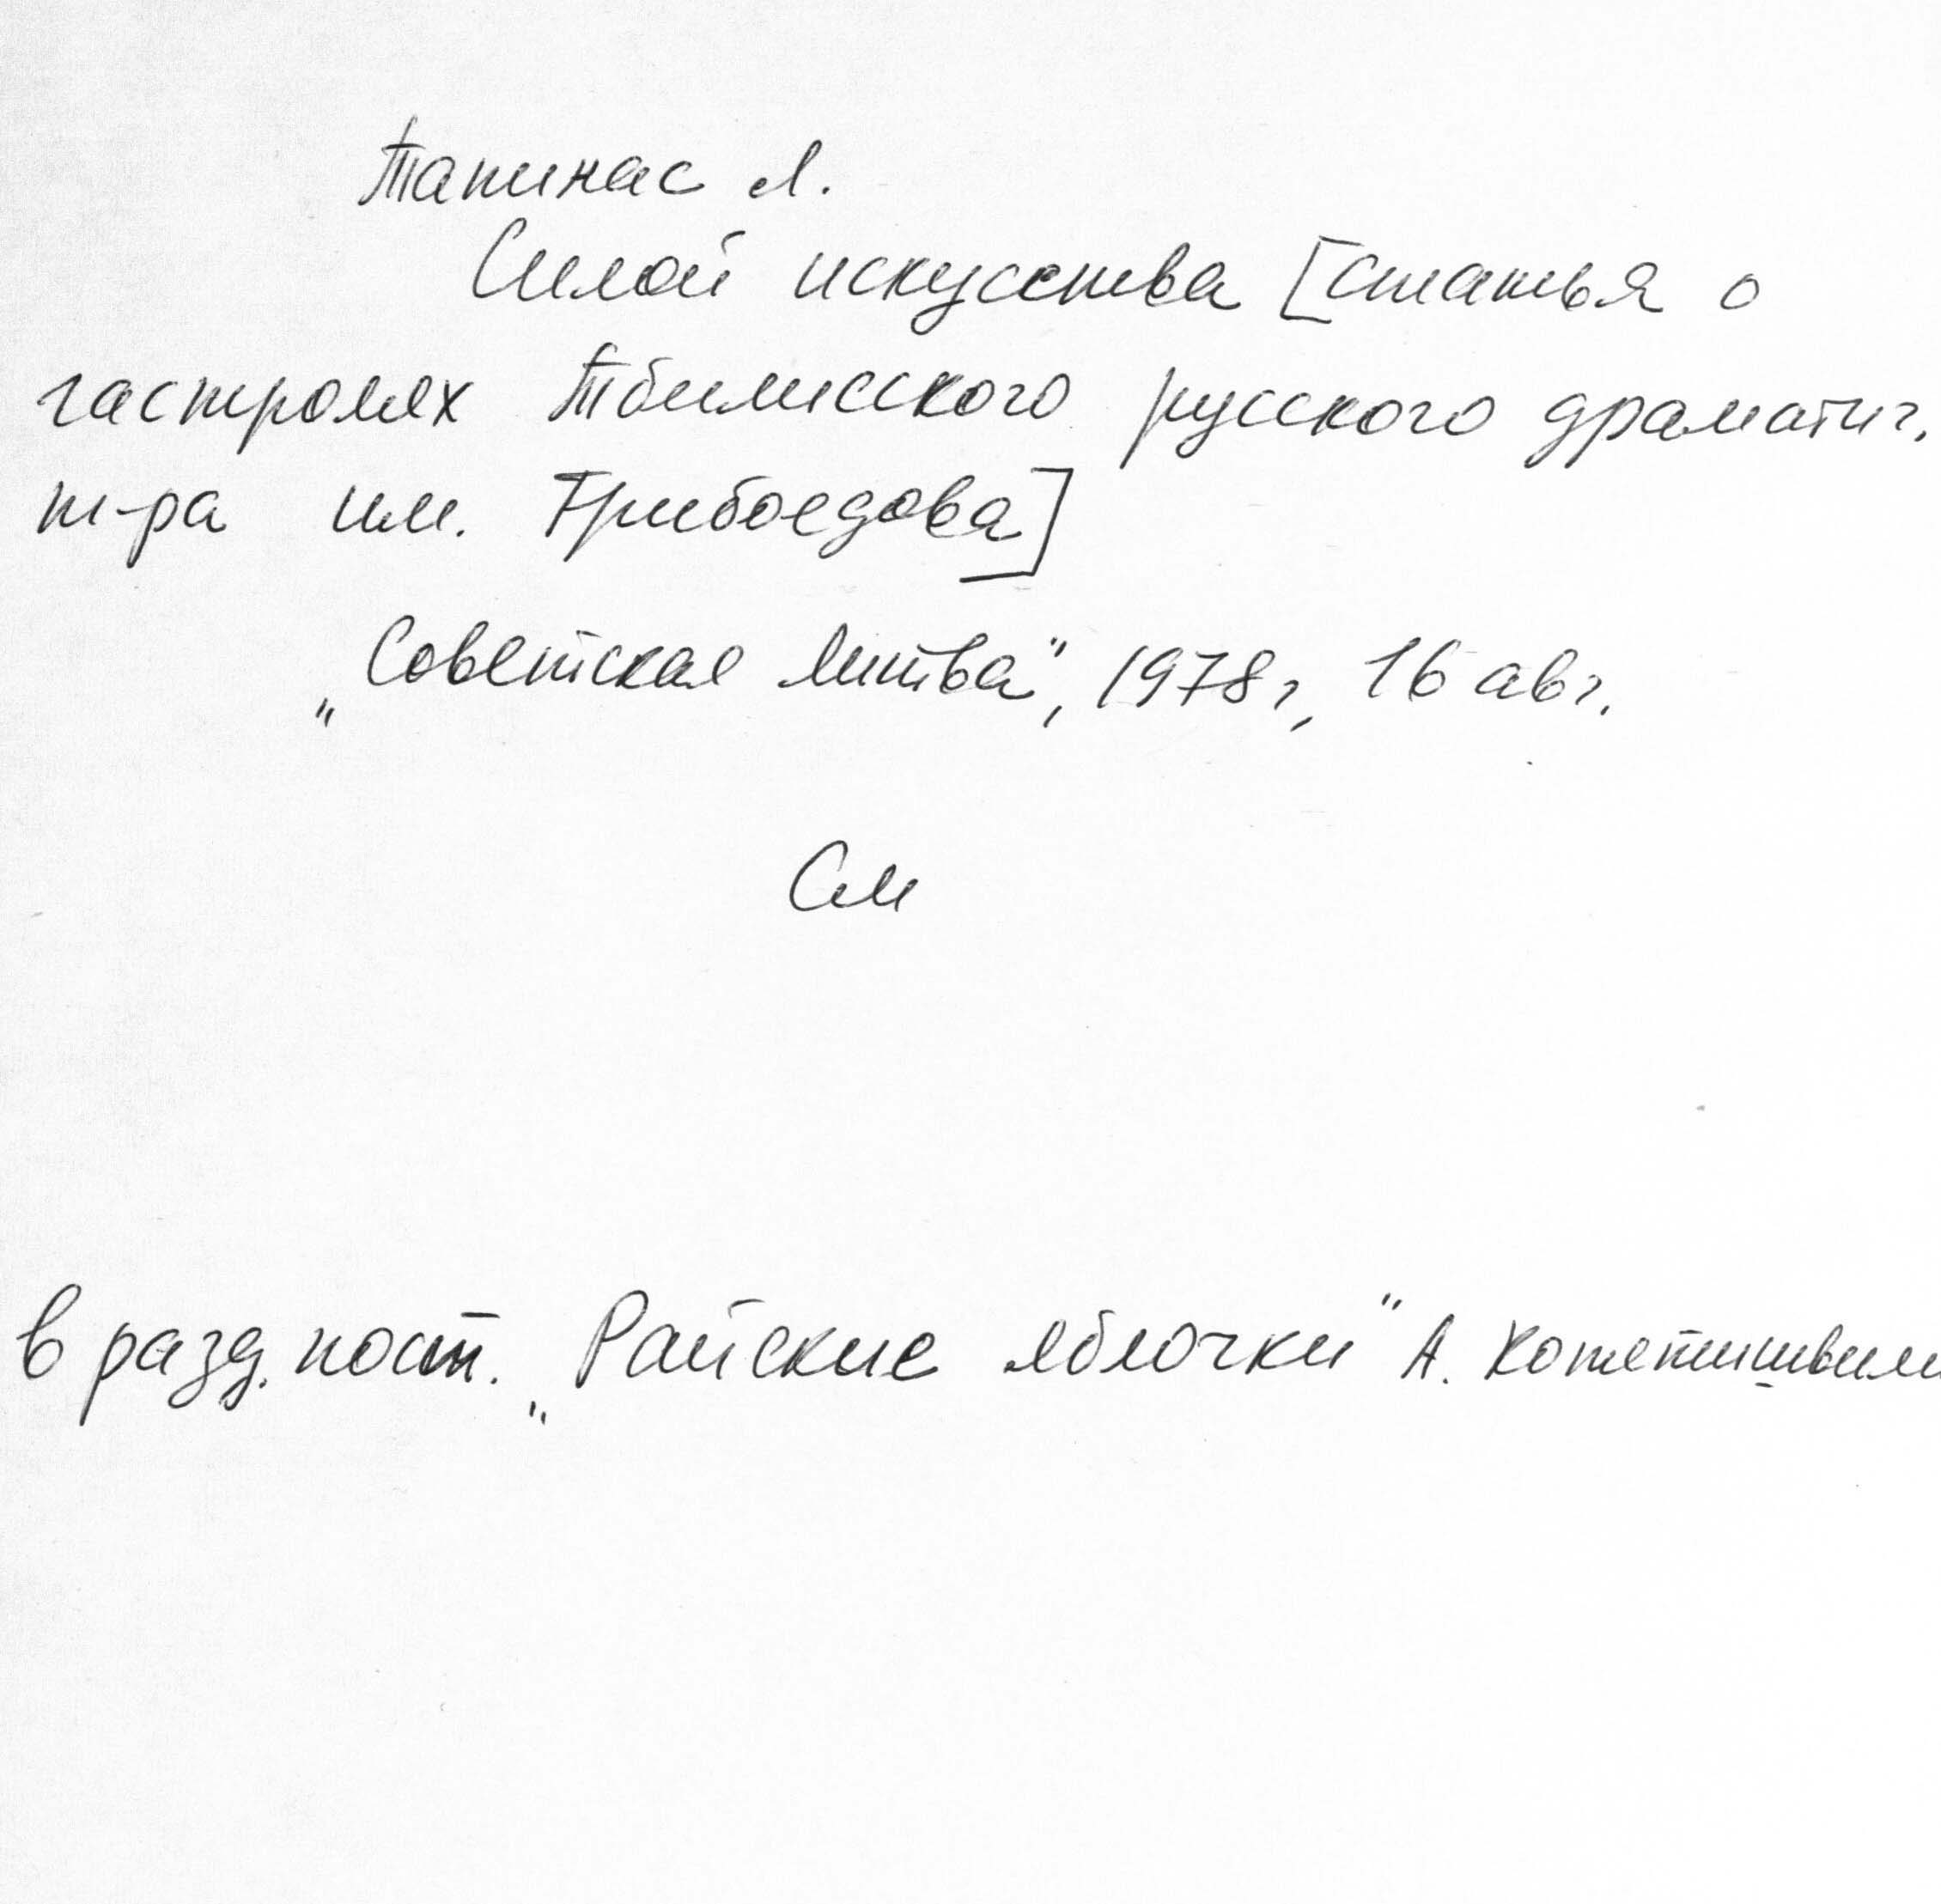 Тапинас Л.
Силой искусства [статья о
гастролях Тбилисского русского драматич.
т-ра им. Грибоедова]
„Советская Литва", 1978 г, 16 авг.
См
в разд. пост. „Райские яблочки" А. Котетишвили